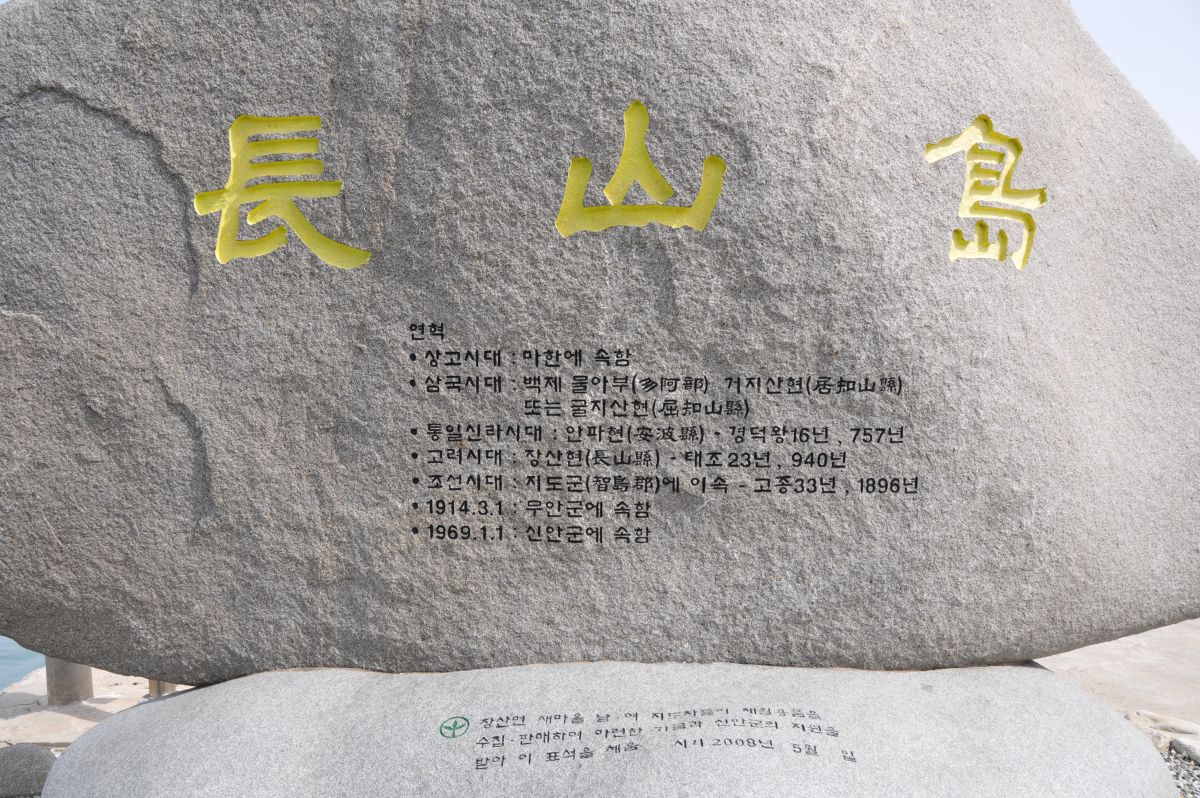 長山島
연혁
• 상고시대 : 마한에 속함
• 삼국시대 : 백제 물아부(多阿郡) 거지산현(居知山縣)
또는 굴지산현(屈知山縣)
• 통일신라시대 : 안파현(安波縣) - 경덕왕16년, 757년
• 고려시대 : 장산현(長山縣) - 태조23년, 940년
• 조선시대 : 지도군(智島郡)에 이속 - 고종33년, 1896년
• 1914.3.1 : 무안군에 속함
• 1969.1.1 : 신안군에 속함
장산면 새마을 남·여 지도자들이 재활용품을
수집·판매하여 마련한 기금과 신안군의 지원을
받아 이 표석을 세움 서기 2008년 5월 일